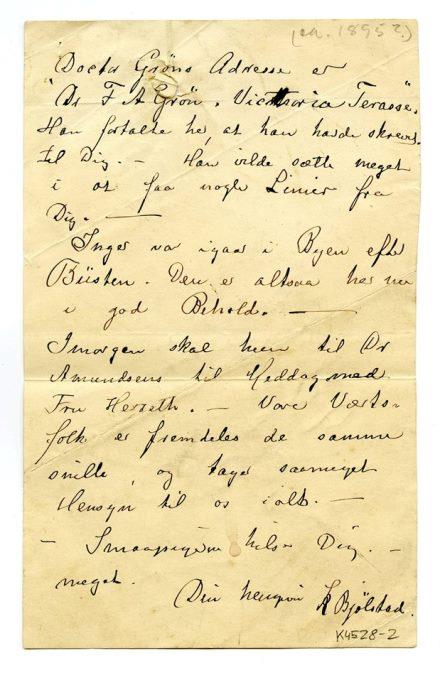 (ca. 1895?)
Doctor Gröns Adresse er
"Dr F A Grön. Victoria Terasse".
Han fortalte her, at han havde skrevet
til Dig. — Han vilde sætte meget
i at faa nogle Linier fra
Dig. —
Inger var igaar i Byen efter
Büsten. Den er altsaa her nu
i god Behold. —
Imorgen skal hun til Dr
Amundsens til Middag med
Fru Herseth. — Vore Værts-
folk er fremdeles de samme
snille, og tager saameget
Hensyn til os i alt. —
— Smaapigerne hilser Dig. —
meget.
Din hengivne K Bjölstad.
K4528-2